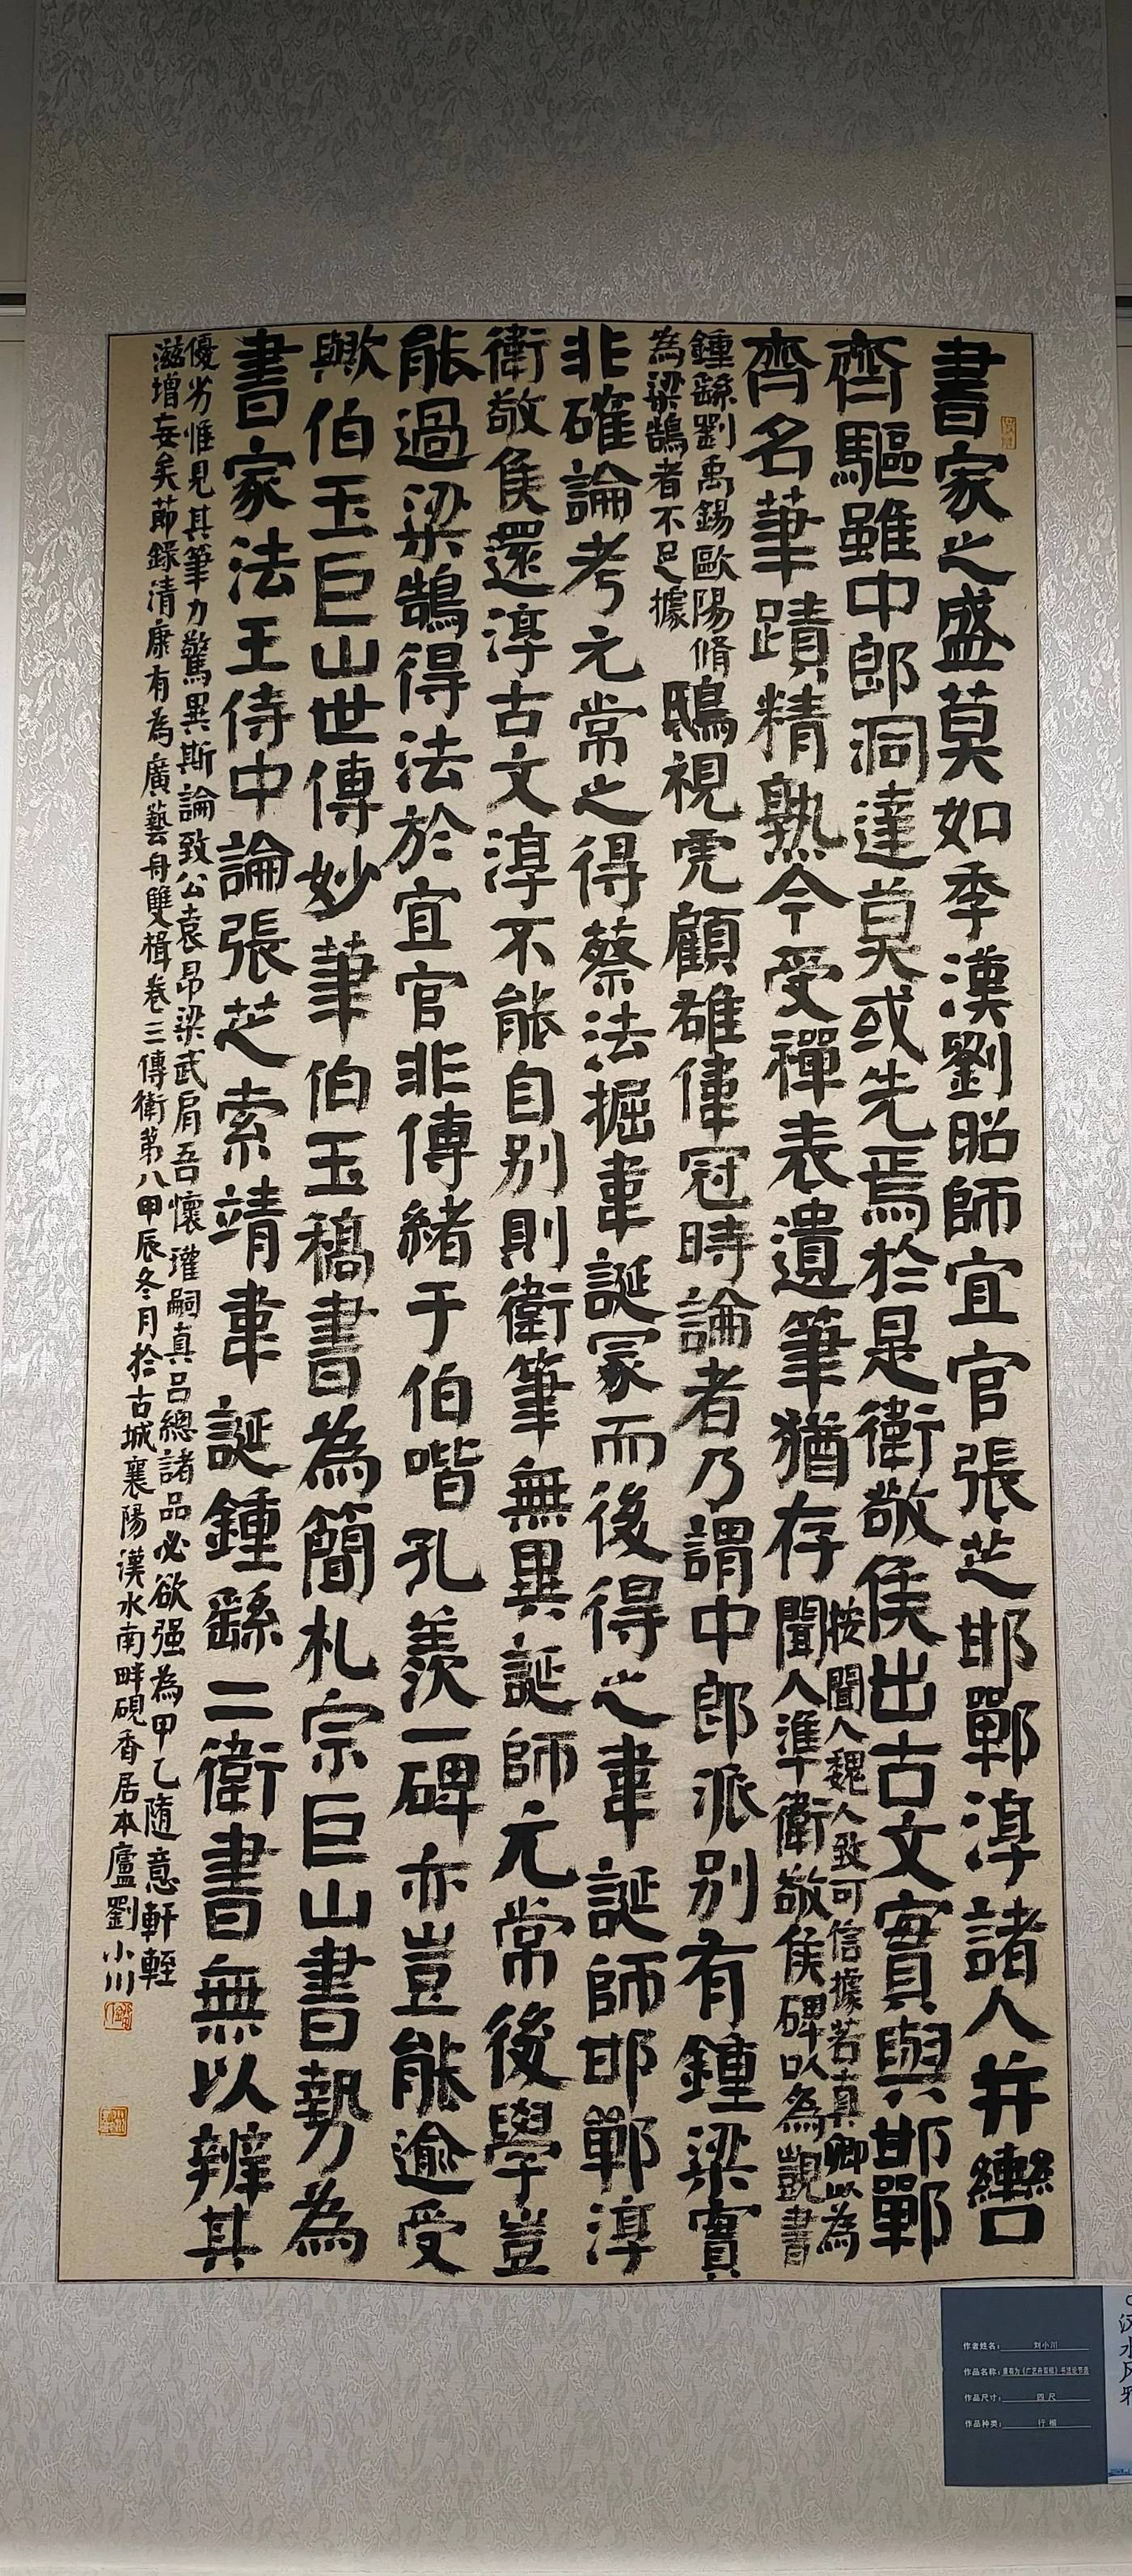 書家之盛莫如季漢劉昭師宜官張芝邯鄲淳諸人并轡
齊驅雖中郎洞達莫或先焉於是衛敬侯出古文實與邯鄲
齊名筆蹟精熟今受禪表遺筆猶存
按聞人魏人致可信據若真卿以為
聞人準衛敬侯碑以為覬書
鍾繇劉禹錫歐陽脩
為梁鵠者不足據
鴟視虎顧雄偉冠時論者乃謂中郎派别有鍾梁實
非確論考元常之得蔡法掘韋誕冢而後得之韋誕師邯鄲淳
衛敬侯還淳古文淳不能自别則衛筆無異誕師元常後學豈
能過梁鵠得法於宜官非傳緒于伯喈孔羨一碑亦豈能逾受
歟伯玉巨山世傳妙筆伯玉稿書為簡札宗巨山書勢為
書家法王侍中論張芝索靖韋誕鍾繇二衛書曰無以辨其
優劣惟見其筆力驚異斯論致公袁昂梁武肩吾懷瓘嗣真呂總諸品必欲强為甲乙隨意軒輊
滋增妄矣節錄清康有為廣藝舟雙楫卷三傳衛第八甲辰冬月於古城襄陽漢水南畔硯香居本廬劉小川
作者姓名：刘小川
作品名称：康有为《广艺舟双楫》书法论节选
作品尺寸：四尺
作品种类：行楷
汉水风